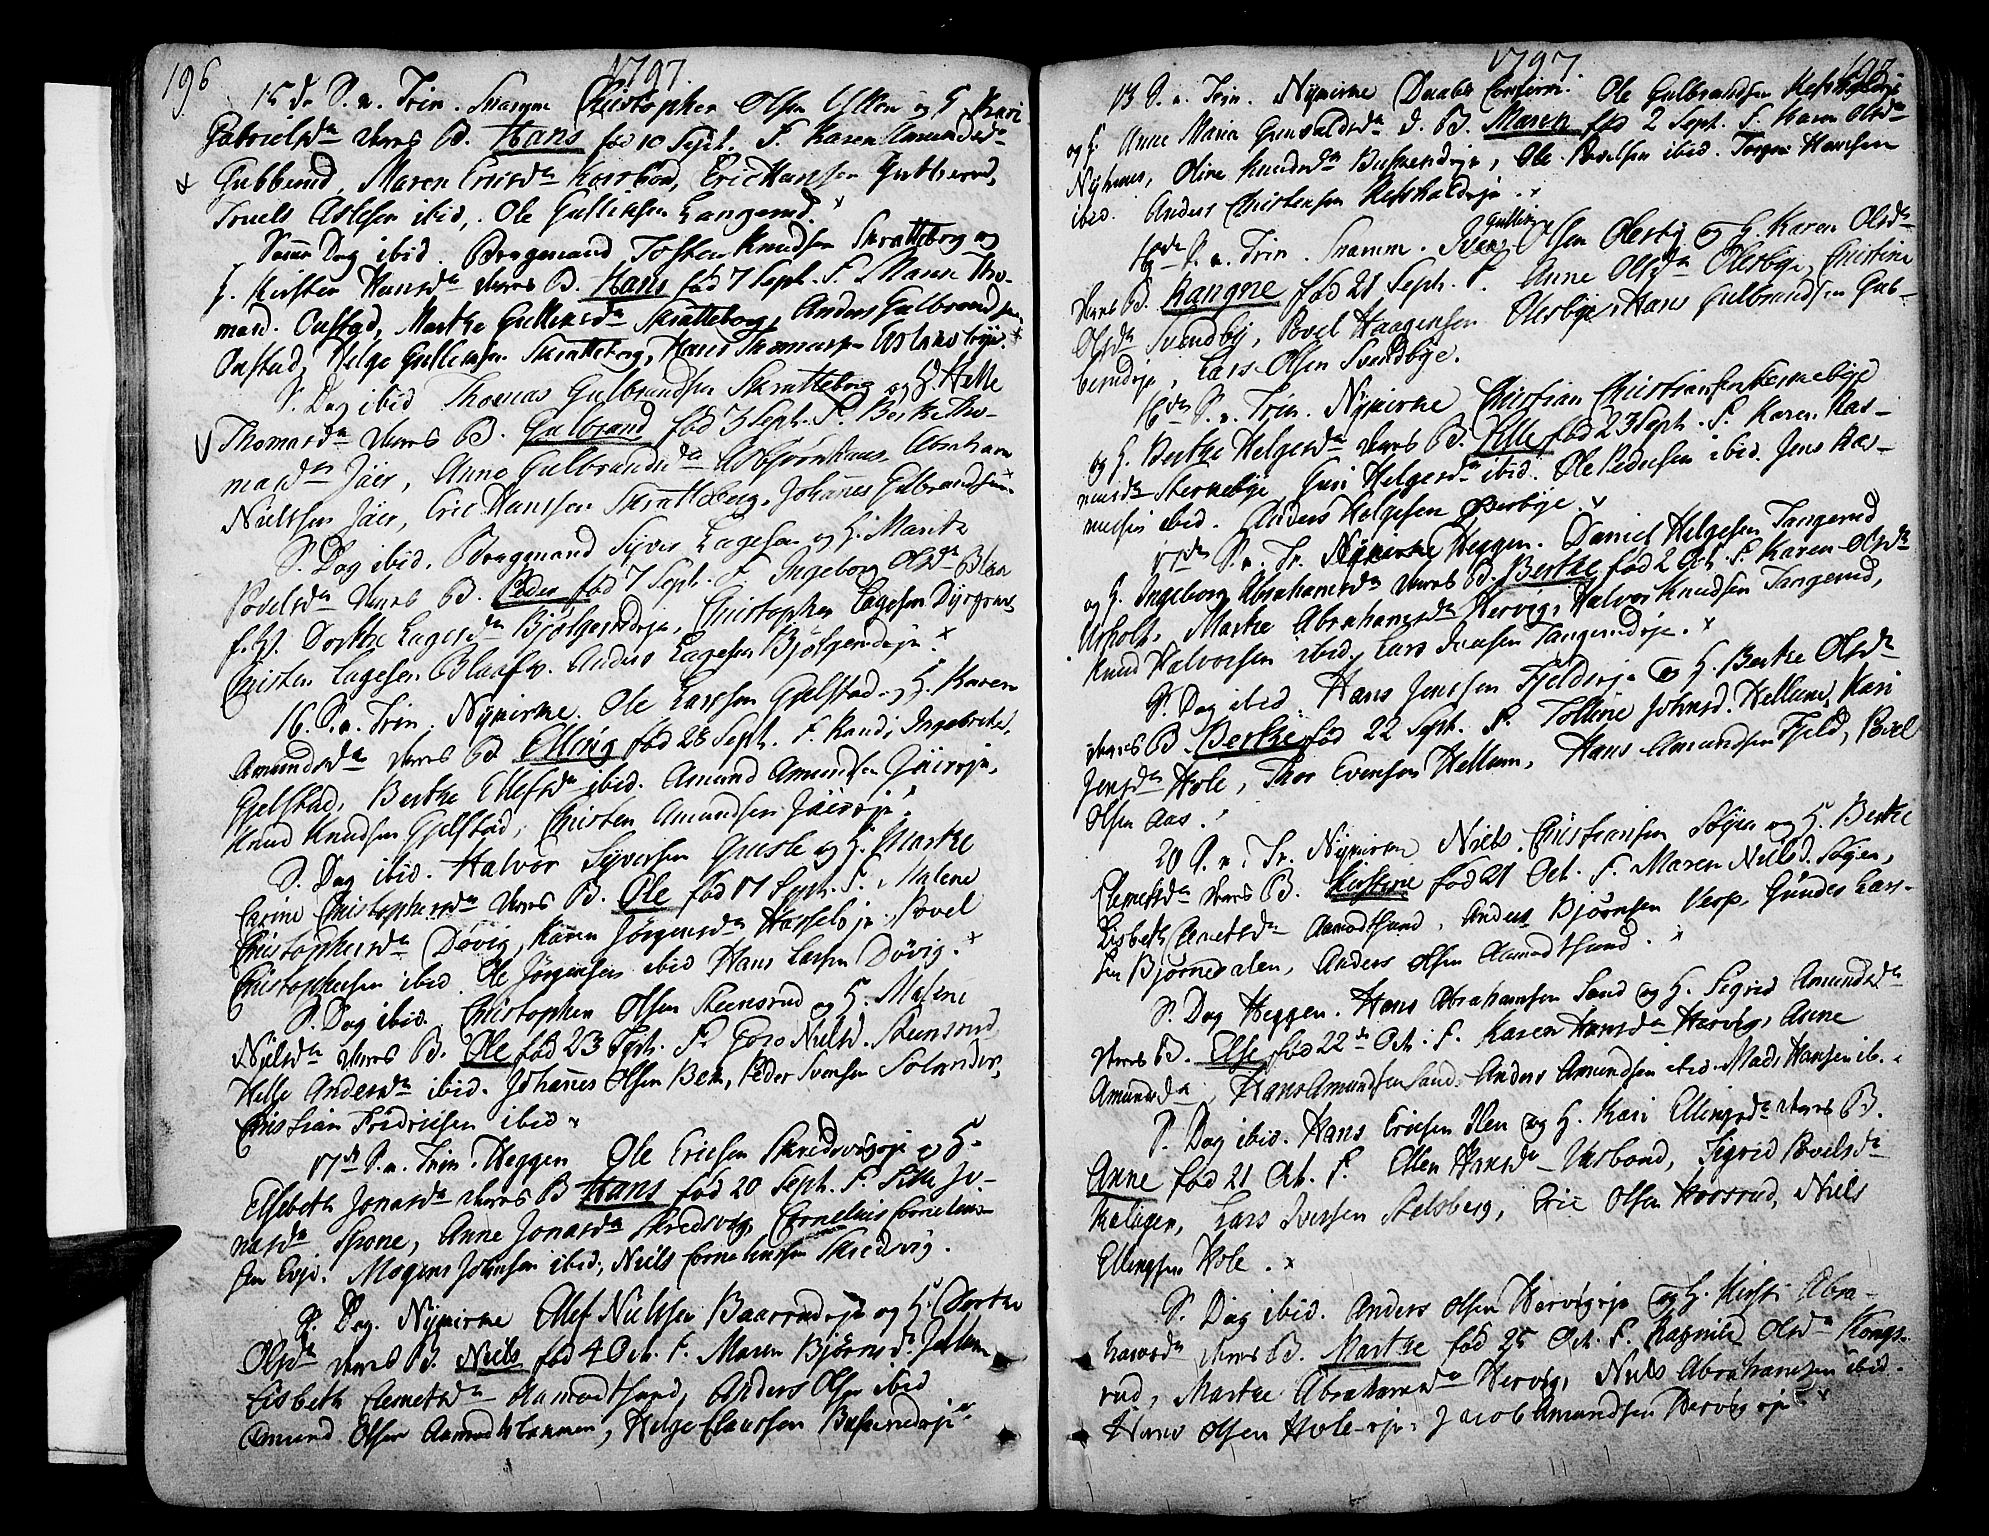 196
1797.
15de S. n. Trin. Snarum Christopher Olsen Ulken og H. Kari
Gabrielsdr deres B. Hans fød 10 Sept. F. Karen Amundsdr
Gubberud, Maren Ericsdr Korsboe, Eric Hansen Gubberud,
Truels Aslesen ibid, Ole Gulliksen Langerud.
Samme Dag ibid. Bragernand Tosten Knudsen Skratteborg og
H. Kirsten Hansdr deres B. Hans fød 7 Sept. F. Marie Tho-
masd. Onstad, Marthe Gulliksdr Skratteborg, Anders Gulbrandsen
Onstad, Helge Gulliksen Skratteborg, Hans Thomasen
S. Dag ibid Thomas Gulbrandsen Skratteborg og H. Helle
Thomasdr deres B. Gulbrand fød 3 Sept. F. Berthe Tho-
masdr Jaer, Anne Gulbrandsdr Abraham
Nielsen Jaer, Eric Hansen Skratteborg, Johannes Gulbrandsen
S. Dag ibid. Bragernand Syver Lagesen og H. Marit
Povelsdr deres B. Peder fød 7 Sept. F. Ingeborg Olsdr Blaa
f. W. Dorthe Lagesdr Bjølgerudeje, Christopher Lagesen Dyrgrav
Christen Lagesen Blaafv. Anders Lagesen Bjølgerudeje.
16. S. n. Trin. Nykirke. Ole Larsen Gjelstad og H. Karen
Amundsdr deres B. Elling fød 28 Sept. F. Randi Ingebreths.
Gjelstad, Berthe Ellefsdr ibid. Amund Amundsen Jaireje,
Knud Knudsen Gjelstad, Christen Amundsen Jaireje.
S. Dag ibid. Halvor Syversen Gusle og H. Marthe
Carine Christophersdr deres B. Ole fød 17 Sept. F. Malene
Christophersdr Døvig, Karen Jørgensdr Hasseleje, Povel
Christophersen ibid. Ole Jørgensen ibid Hans Larsen Døvig.
S. Dag ibid. Christopher Olsen Steensrud og H. Malene
Nielsdr deres B. Ole fød 23 Sept. F. Goro Nielsd. Steensrud,
Helle Andersdr ibid. Johannes Olsen Bek, Peder Svensen
Christian Fredrichsen ibid
17de S. n. Trin. Heggen Ole Ericsen Skredsvigeje og H.
Elsebeth Jonasdr deres B Hans fød 20 Sept. F. Sille Jo-
nasdr Spone, Anne Jonasdr Skredsvig, Cornelius Cornelius-
sen Evje. Mogens Johnsen ibid, Niels Corneliussen Skredsvig.
S. Dag. Nykirke Ellef Nielsen Baasrudeje og H. Dorthe
Olsdr deres B. Niels fød 4 Oct. F. Maren Bjørnsdr
Lisbeth Clemetsdr Aamodtsund, Anders Olsen ibid
Amund Olsen Helge Clausen
1797.
13 S. n. Trin. Nykirke Daabs Confirm. Ole Gulbrandsen
og H. Anne Maria d. B. Maren fød 2 Sept. F. Karen Olsdr
Nyhuus, Oline Knudsdr Buskerudeje, Ole Povelsen ibid. Hansen
ibid. Anders Christensen
16de S. n. Trin. Snarum. Gullik Olsen Olesby og H. Karen Olsdr
deres B. Rangne fød 21 Sept. F. Anne Olsdr Olesbye, Christine
Olsdr Svendby, Povel Haagensen Olesbye, Hans Gulbrandsen Gub-
berudeje, Lars Olsen Svendbye.
16de S. n. Trin. Nykirke Christian Christiansen Kerkebye
og H. Berthe Helgesdr deres B. Sille fød 23 Sept. F. Karen Ras-
musdr Sterkebye, Guri Helgesdr ibid. Ole Pedersen ibid. Jens Ras-
musen ibid. Anders Helgesen
17de S. n. Tr. Heggen. Daniel Helgesen Tangerud
og H. Ingeborg Abrahamsdr deres B. Berthe fød 2 Oct. F. Karen Olsdr
Urholt, Marthe Abrahamsdr Hervig, Halvor Knudsen Tangerud,
Knud Halvorsen ibid, Lars Iversen Tangerudeje.
S. Dag ibid. Hans Jensen Fjeldeje og H. Berthe Olsdr
deres B. Berthe fød 22 Sept. F. Tolline Johnsd. Hellum, Kari
Jensdr Hole, Thor Evensen Hellum, Hans Amundsen Fjeld, Povel
Olsen Aas.
20 S. n. Tr. Nykirke Niels Christiansen Søgen og H. Berthe
Clemetsdr deres B. Kirstine fød 21 Oct. F. Maren Nielsd. Søgen,
Lisbeth Clemetsdr Aamodtsund, Anders Bjørnsen Verp, Gunder Lars-
sen Bjørnedalen, Anders Olsen Aamodtsund.
S. Dag Heggen. Hans Abrahamsen Sand og H. Sigrid Amundsdr
deres B. Else fød 22de Oct. F. Karen Hansdr Hervig, Anne
Amundsdr, Hans Amundsen Sand, Anders Amundsen ibid. Mads Hansen ib.
S. Dag ibid. Hans Ericsen Ilen og H. Kari Ellingsdr deres B.
Anne fød 21 Oct. F. Ellen Hansdr Vasbond, Sigrid Povelsdr
Kaligen, Lars Iversen Stelsberg, Eric Olsen Horsrud, Niels
Ellingsen Hole.
S. Dag ibid. Anders Olsen Hervigeje og H. Kirsti Abra-
hamsdr deres B. Marthe fød 25 Oct. F. Ragnild Olsdr Kongs-
rud, Marthe Abrahamsdr Hervig, Niels Abrahamsen ibid.
Hans Olsen Hole-eje, Jacob Amundsen Hervigeje.